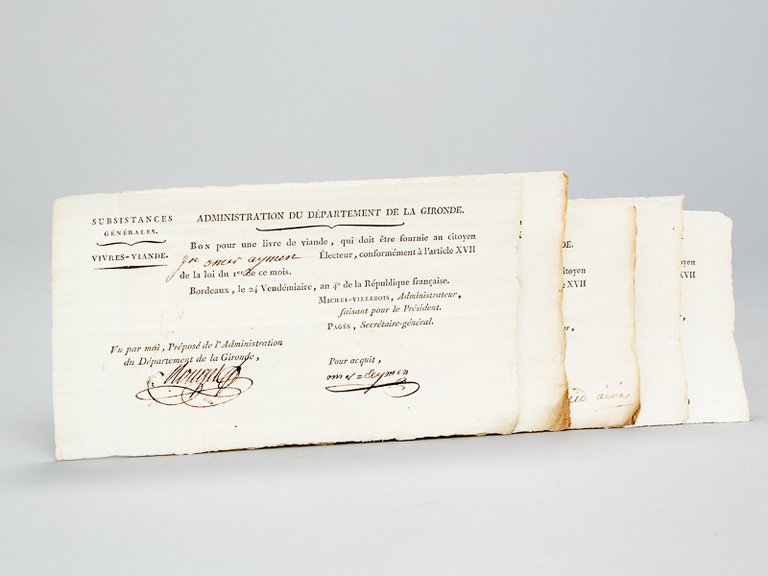 SUBSISTANCES
GÉNÉRALES.
VIVRES-VIANDE.
ADMINISTRATION DU DÉPARTEMENT DE LA GIRONDE.
BON pour une livre de viande, qui doit être fournie au citoyen
omer aymen Électeur, conformément à l'article XVII
de la loi du 1er de ce mois.
Bordeaux, le 24 Vendémiaire, an 4e de la République française.
MICHEL-VILLEBOIS, Administrateur,
faisant pour le Président.
PAGÈS, Secrétaire-général.
Vu par moi, Préposé de l'Administration
du Département de la Gironde,
Pour acquit,
omer Aymen
DE.
itoyen
XVII
r,
citoyen
XVII